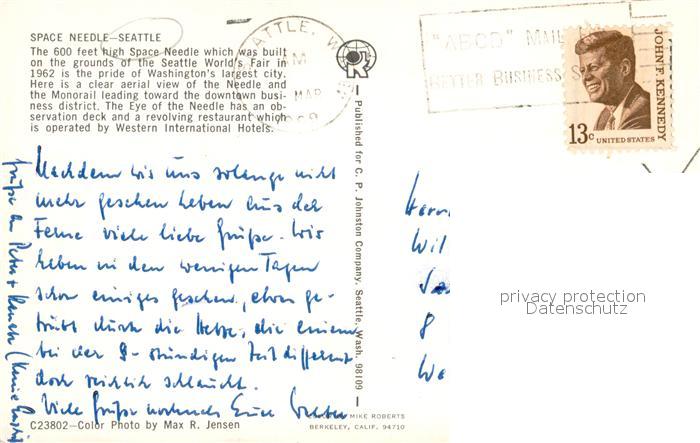 SPACE NEEDLE—SEATTLE
The 600 feet high Space Needle which was built
on the grounds of the Seattle World's Fair in
1962 is the pride of Washington's largest city.
Here is a clear aerial view of the Needle and
the Monorail leading toward the downtown busi-
ness district. The Eye of the Needle has an ob-
servation deck and a revolving restaurant which
is operated by Western International Hotels.
SEATTLE, W
MAR
"ABCD" MAIL
BETTER BUSINESS
JOHN F. KENNEDY
13c UNITED STATES
Nachdem wir uns solange nicht
mehr gesehen haben aus der
Ferne viele liebe Grüße. Wir
haben in den wenigen Tagen
schon einiges gesehen, etwas ge-
trübt durch die Hetze, die einem
bei der 8-stündigen Zeitdifferenz
doch reichlich schlaucht.
Viele Grüße nochmals Eure
Grüße an Peter +
Published for C. P. Johnston Company, Seattle, Wash. 98109
Wil
8
privacy protection
Datenschutz
C23802—Color Photo by Max R. Jensen
MIKE ROBERTS
BERKELEY, CALIF. 94710